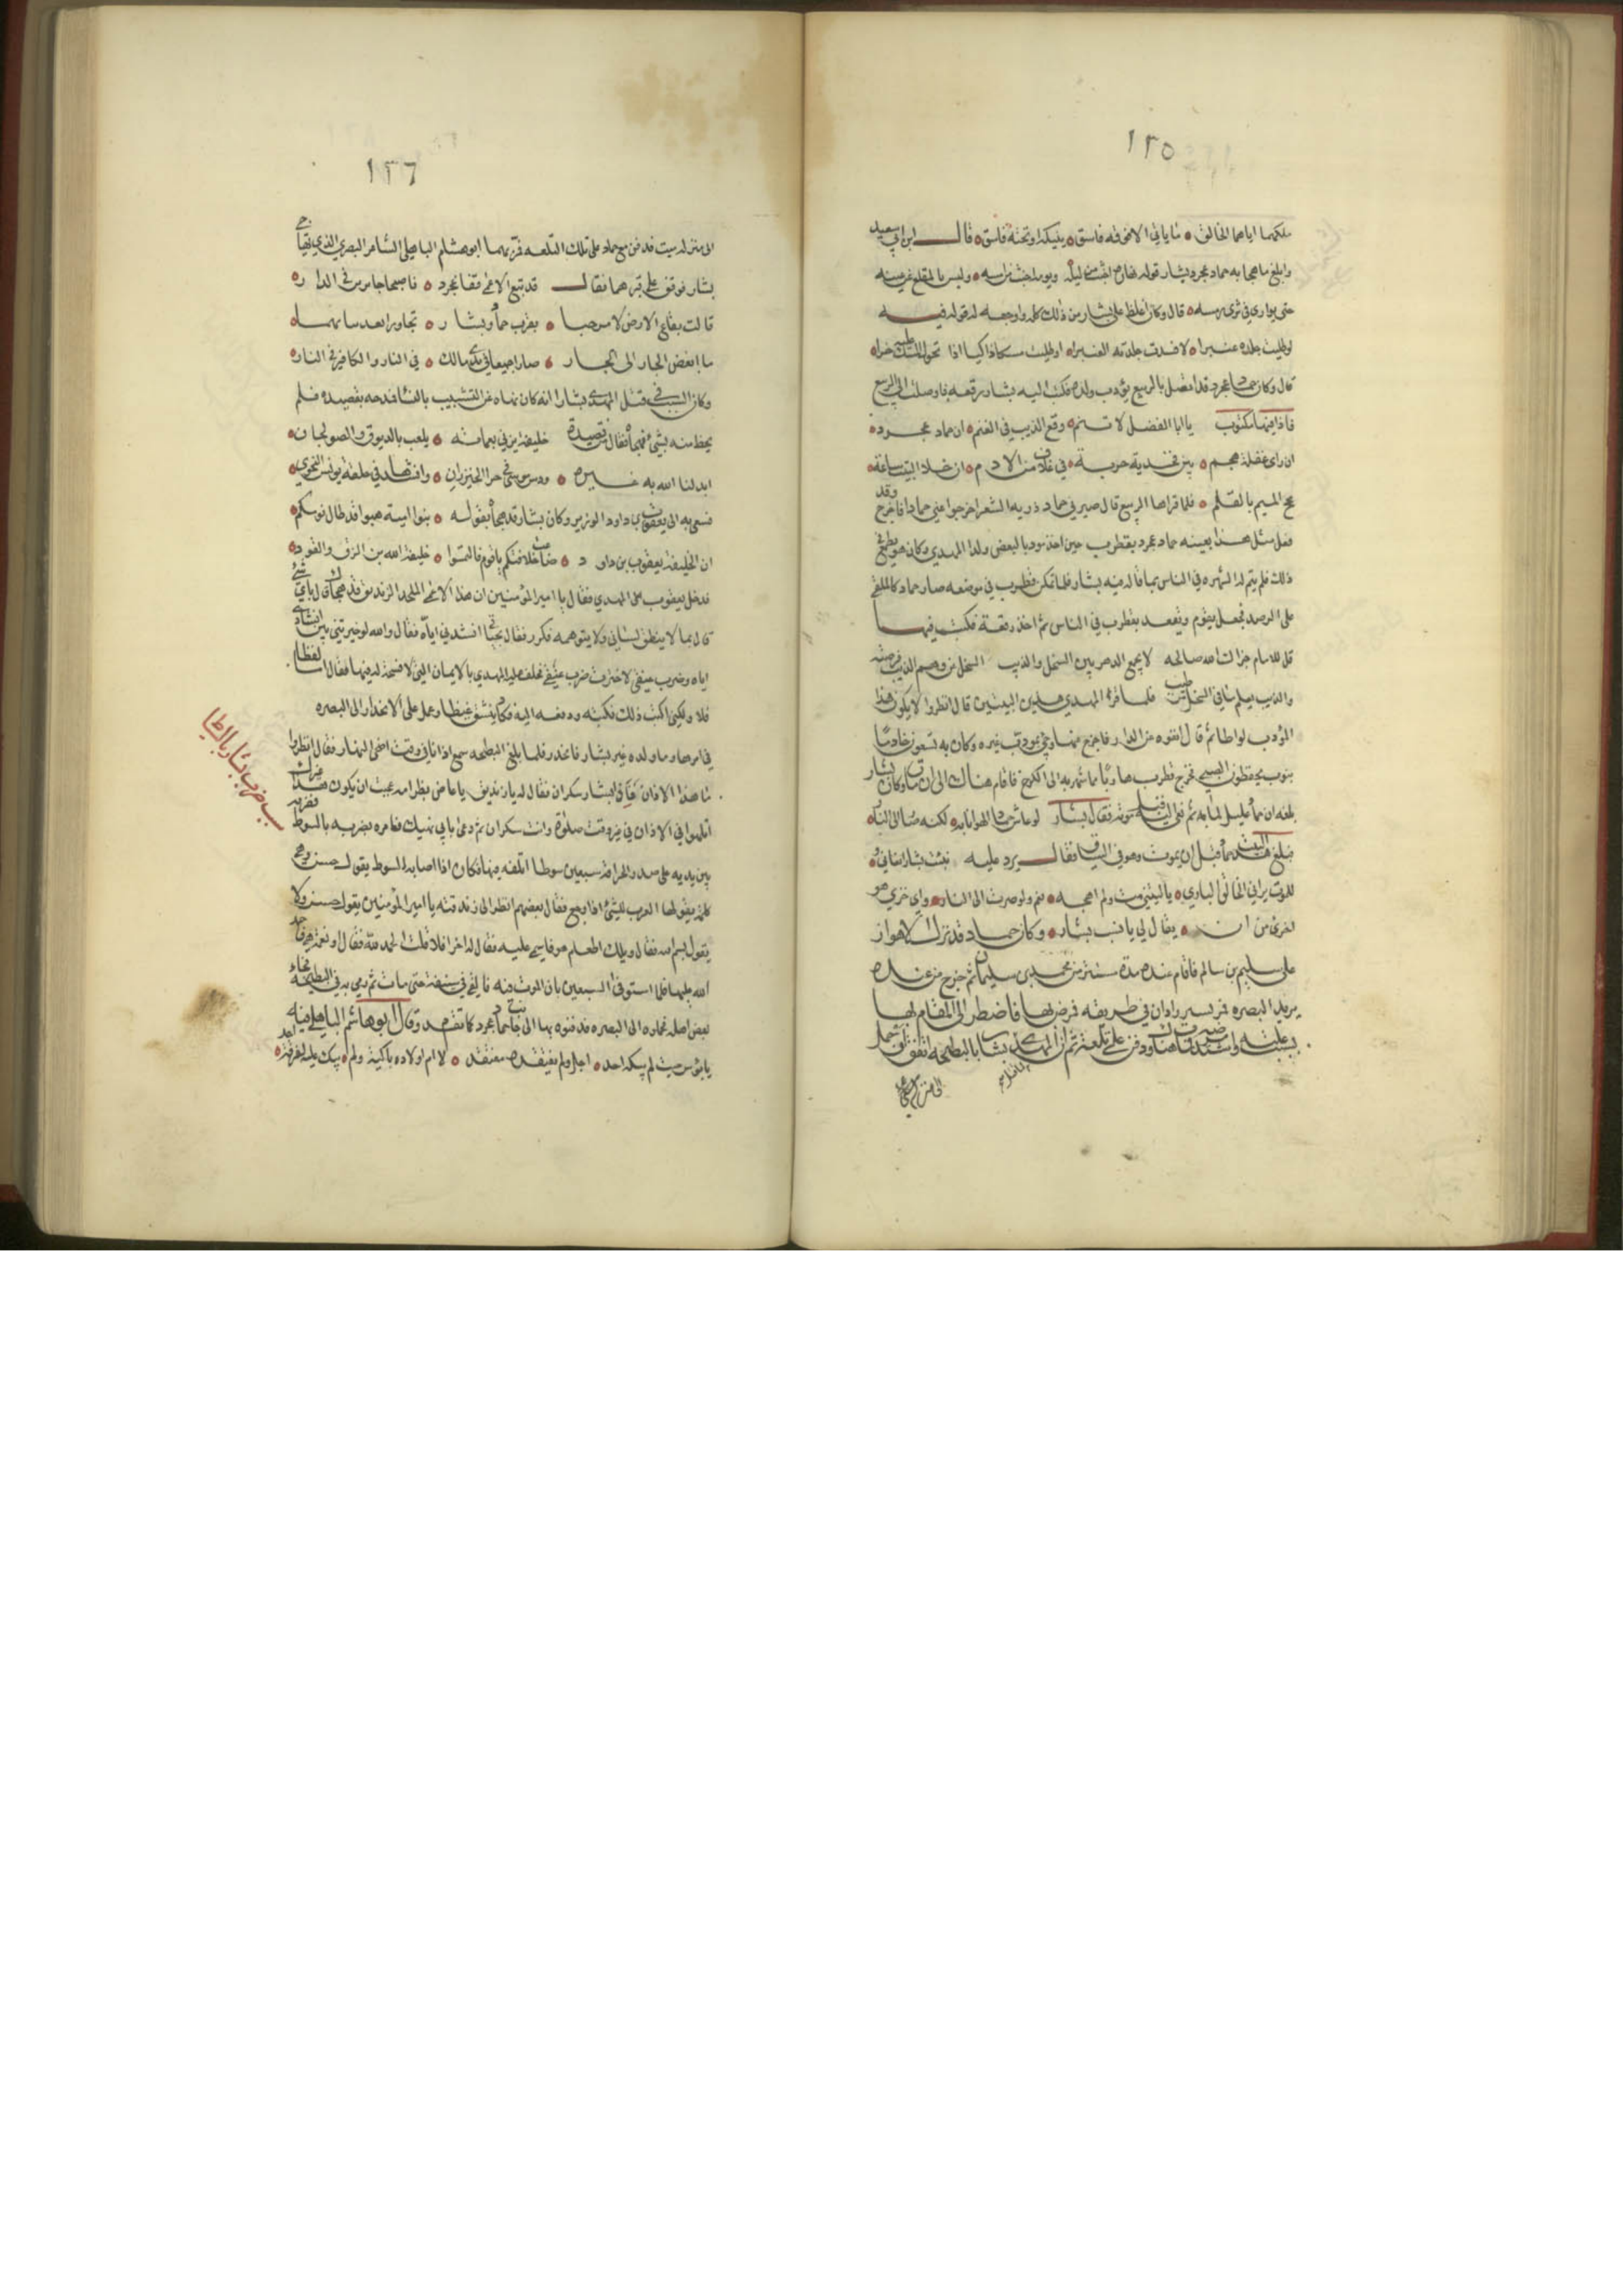 ١٣٥
ملكهما اياهما الخالق ما ياتي الا من فوقه فاسق ينيكه او تحته فاسق قال ابن ابي سعيد
وابلغ ما هجا به حماد عجرد بشار قوله نهاره اخبث من ليله ويومه اخبث من امسه وليس بالمقلع عن غيه
حتى يوارى في ثرى رمسه قال وكان اغلظ على بشار من ذلك كله واوجعه له قوله فيه
لو طليت جلده عنبرا لافسدت جلدته العنبرا او طليت مسكا ذا كيا اذا تحول المسك عليه خرا
قال وكان حماد عجرد قد اتصل بالربيع يؤدب ولده فكتب اليه بشار رقعه فاوصلت الى الربيع
فاذا فيها مكتوب يا ابا الفضل لا تنم وقع الذيب في الغنم ان حماد عجرد
ان راى غفلة هجم بين فخذيه حربة في غلاف من الادم ان خلا البيت ساعة
مجمج الميم بالقلم فلما قراها الربيع قال صيرني حماد ذريه الشعرا اخرجوا عني حمادا فاخرج وقد
فعل مثل هذا بعينه حماد عجرد بقطرب حين اخذ مودبا لبعض ولد المهدي وكان هو يطمع في
ذلك فلم يتم له لشهرته في الناس بما قاله فيه بشار فلما تمكن قطرب في موضعه صار حماد كالملقى
على الرصد فجعل يقوم ويقعد بقطرب في الناس ثم اخذ رقعة فكتب فيها
قل للامام جزاك الله صالحه لا يجمع الدهر بين السخل والذيب السخل غر وهم الذيب فرصته
والذيب يعلم ما في السخل من طيب فلما قرا المهدي هذين البيتين قال انظروا لا يكون هذا
المؤدب لوطيا ثم قال انفوه عن الدار فاخرج عنها وجي بمودب غيره وكان به تسعون خادما
بنوب يحفظون الصبي فخرج قطرب هاربا مما شهر به الى الكرخ فاقام هناك الى ان مات وكان بشار
بلغه ان حماد عليل لما به ثم نعي اليه قبل موته فقال بشار لو عاش حماد لهونا به لكنه صار الى النار
فبلغ هذا البيت حماد قبل ان يموت وهو في السياق فقال يرد عليه نبئت بشارا نعاني
للموت يراني الخالق الباري يا ليتني مت ولم اهجه نعم ولو صرت الى النار واي خزي هو
اخزى من ان يقال لي يا نب بشار وكان حماد قد ترك الاهواز
على سليم بن سالم فاقام عنده مدة مستتر من محمد بن سليمان ثم خرج من عنده
يريد البصره فمر بسيرزادان في طريقه فمرض بها فاضطر الى المقام بها
بسبب علته واشتد مرضه فمات هناك ودفن على تلعة ثم ان المهدي بشارا بالبطيحة اتفق ان حمل
١٣٦
الى منزله ميت فدفن مع حماد على تلك التلعه فمر بهما ابو هشام الباهلي الشاعر البصري الذي يهاجي
بشار فوقف على قبرهما فقال قد تبع الاعمى قفا عجرد فاصبحا جارين في الدار
قالت بقاع الارض لا مرحبا بقرب حماد وبشار تجاورا بعد تنائيهما
ما ابغض الجار الى الجار صارا جميعا في يدي مالك في النار والكافر في النار
وكان السبب في قتل المهدي بشارا انه كان نهاه عن التشبيب بالنساء فمدحه بقصيده فلم
يحظ منه بشيء فهجاه فقال من قصيدة خليفة يزني بعماته يلعب بالدبوق والصولجان
ابدلنا الله به غيره ودس موسى في حر الخيزران وانشدها في حلقة يونس النحوي
فسعي به الى يعقوب بن داود الوزير وكان بشار قد هجاه بقوله بنوا امية هبوا قد طال نومكم
ان الخليفة يعقوب بن داود ضاعت خلافتكم يا قوم فالتمسوا خليفة الله بين الزق والعود
فدخل يعقوب على المهدي فقال يا امير المؤمنين ان هذا الاعمى الملحد الزنديق قد هجاك قال باي شيء
قال بما لا ينطق لساني ولا يتوهمه فكرر فقال بحياتي انشدني اياه فقال والله لو خيرتني بين انشادي
اياه وضرب عنقي لاخترت ضرب عنقي فحلف عليه المهدي بالايمان التي لا فسحة له فيها فقال اما لفظا
فلا ولكني اكتب ذلك فكتبه ودفعه اليه فكاد ينشق غيظا وعمل على الانحدار الى البصره
في امرها وما ولده غير بشار فانحدر فلما بلغ البطيحه سمع اذانا في وقت اضحى النهار فقال انظروا
ما هذا الاذان فاذا بشار سكران فقال له يا زنديق يا عاض بظر امه عجبت ان يكون هذا غيرك
اتلهوا في الاذان في غير وقت صلوة وانت سكران ثم دعى بابن نهيك فامره بضربه بالسوط فضربه
بين يديه على صدر الحراقة سبعين سوطا اتلفه فيها فكان اذا اصابه السوط يقول حس وهي
كلمة يقولها العرب للشيء اذا اوجع فقال بعضهم انظر الى زندقته يا امير المؤمنين يقول حس ولا
يقول بسم الله فقال ويلك اطعام هو فاسمي عليه فقال له اخر افلا قلت الحمد لله فقال او نعمة هي فاحمد
الله عليها فلما استوفى السبعين بان الموت فيه فالقي في سفينة حتى مات ثم رمي به في البطيحة فجاء
بعض اهله فحملوه الى البصره فدفنوه بها الى جانب حماد عجرد كما تقدم وقال ابو هاشم الباهلي فيه
يا بؤس ميت لم يبكه احد اجل ولم يفتقده مفتقد لا ام اولاده باكية ولم يبك عليه لفرقة احد
سبب ضرب بشار بالسياط